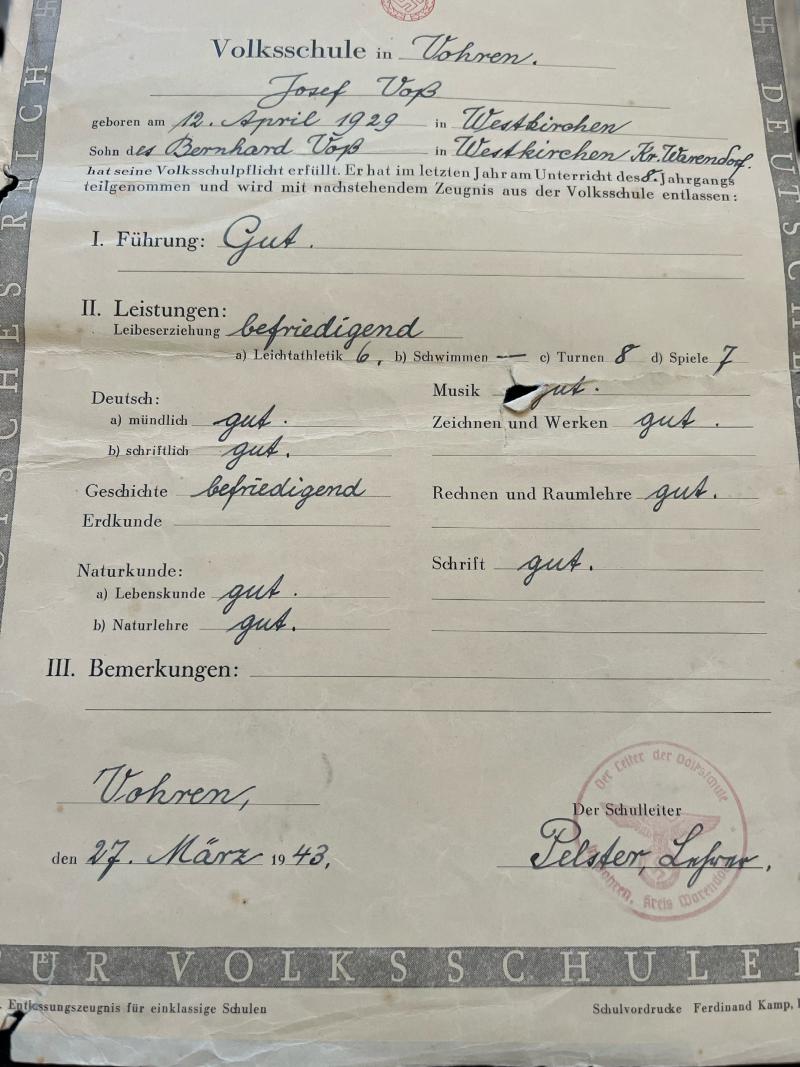 Volksschule in Vohren.
Josef Voß
geboren am 12. April 1929 in Westkirchen
Sohn des Bernhard Voß in Westkirchen Kr. Warendorf.
hat seine Volksschulpflicht erfüllt. Er hat im letzten Jahr am Unterricht des 8. Jahrgangs
teilgenommen und wird mit nachstehendem Zeugnis aus der Volksschule entlassen:
I. Führung: Gut.
II. Leistungen:
Leibeserziehung befriedigend
a) Leichtathletik 6, b) Schwimmen — c) Turnen 8 d) Spiele 7
Deutsch:
a) mündlich gut.
b) schriftlich gut.
Geschichte befriedigend
Erdkunde
Naturkunde:
a) Lebenskunde gut.
b) Naturlehre gut.
Musik gut.
Zeichnen und Werken gut.
Rechnen und Raumlehre gut.
Schrift gut.
III. Bemerkungen:
Vohren,
den 27. März 1943.
Der Schulleiter
Pelster, Lehrer.
Der Leiter der Volksschule
Vohren, Kreis Warendorf
DEUTSCHES REICH
FÜR VOLKSSCHULE
Entlassungszeugnis für einklassige Schulen
Schulvordrucke Ferdinand Kamp,